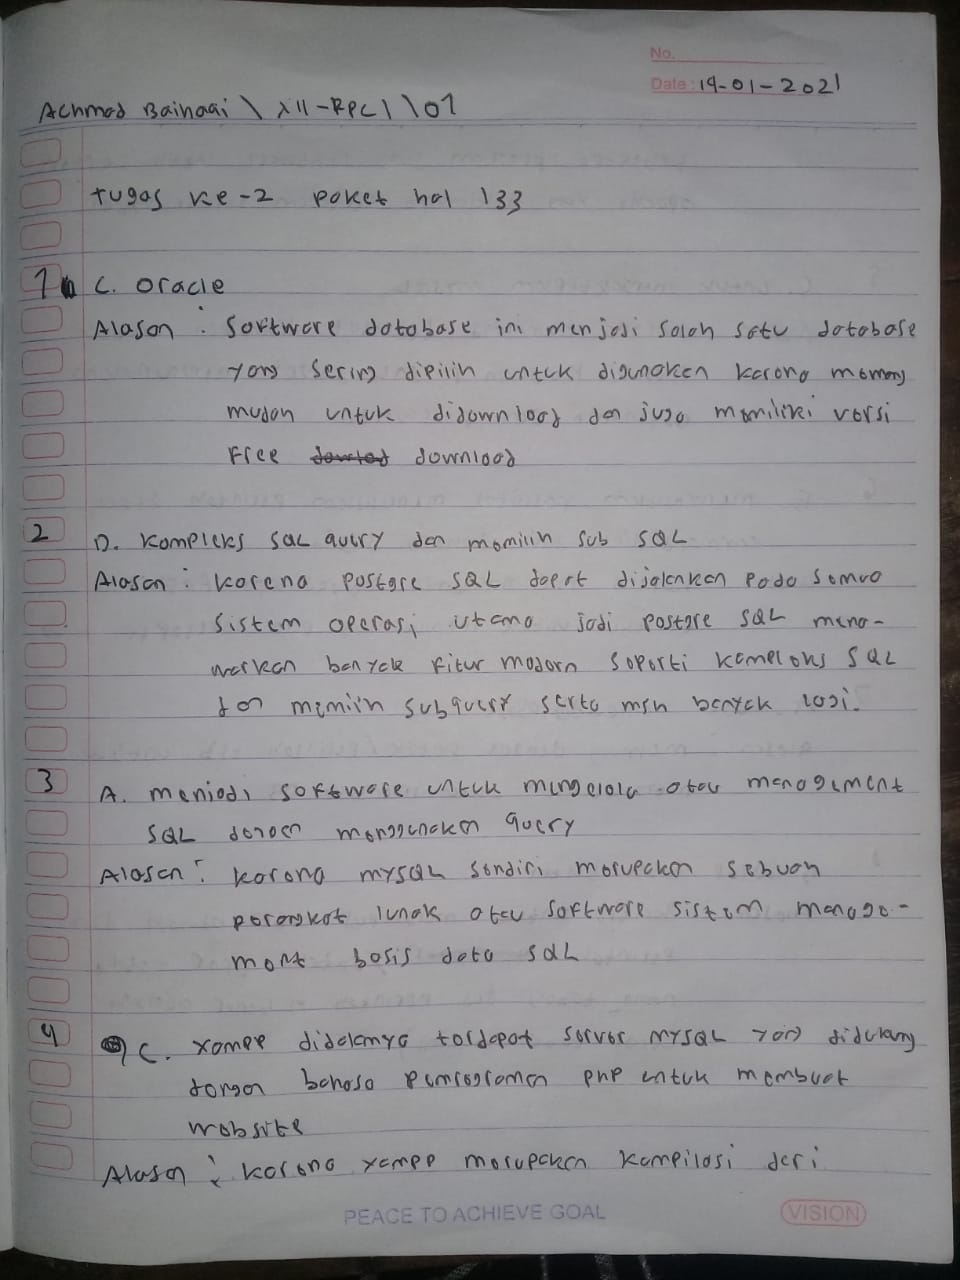 No.
Date: 19-01-2021
Achmad Baihaqi \ XII-RPL 1 \ 01
tugas ke-2 paket hal 133
1. C. Oracle
Alasan : Software database ini menjadi salah satu database
yang sering dipilih untuk digunakan karena memang
mudah untuk didownload dan juga memiliki versi
free download
2 D. Kompleks SQL query dan memilih sub SQL
Alasan : Karena postgre SQL dapat dijalankan pada semua
sistem operasi utama jadi postgre SQL mena-
warkan banyak fitur modern seperti kompleks SQL
dan memilih subquery serta msh banyak lagi.
3 A. menjadi software untuk mengelola atau management
SQL dengan menggunakan query
Alasan : karena mySQL sendiri merupakan sebuah
perangkat lunak atau software sistem manage-
ment basis data SQL
4 C. Xampp didalamya terdapat server mySQL yang didukung
dengan bahasa pemrograman php untuk membuat
website
Alasan : karena xampp merupakan kompilasi dari
PEACE TO ACHIEVE GOAL
VISION